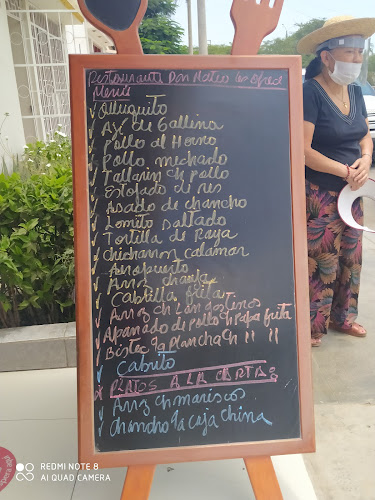 Restaurante Don Mateo les ofrece
Menú
Olluquito
Aji de Gallina
Pollo al Horno
Pollo mechado
Tallarin ch pollo
Estofado de res
Asado de chancho
Lomito saltado
Tortilla de Raya
chicharron calamar
Aeropuerto
Arroz chaufa
Cabrilla frita
Arroz ch Langostinos
Apanado de pollo ch Papa frita
Bistec a la plancha ch " "
Cabrito
PLATOS A LA CARTA
Arroz ch mariscos
chancho a la caja china
REDMI NOTE 8
AI QUAD CAMERA